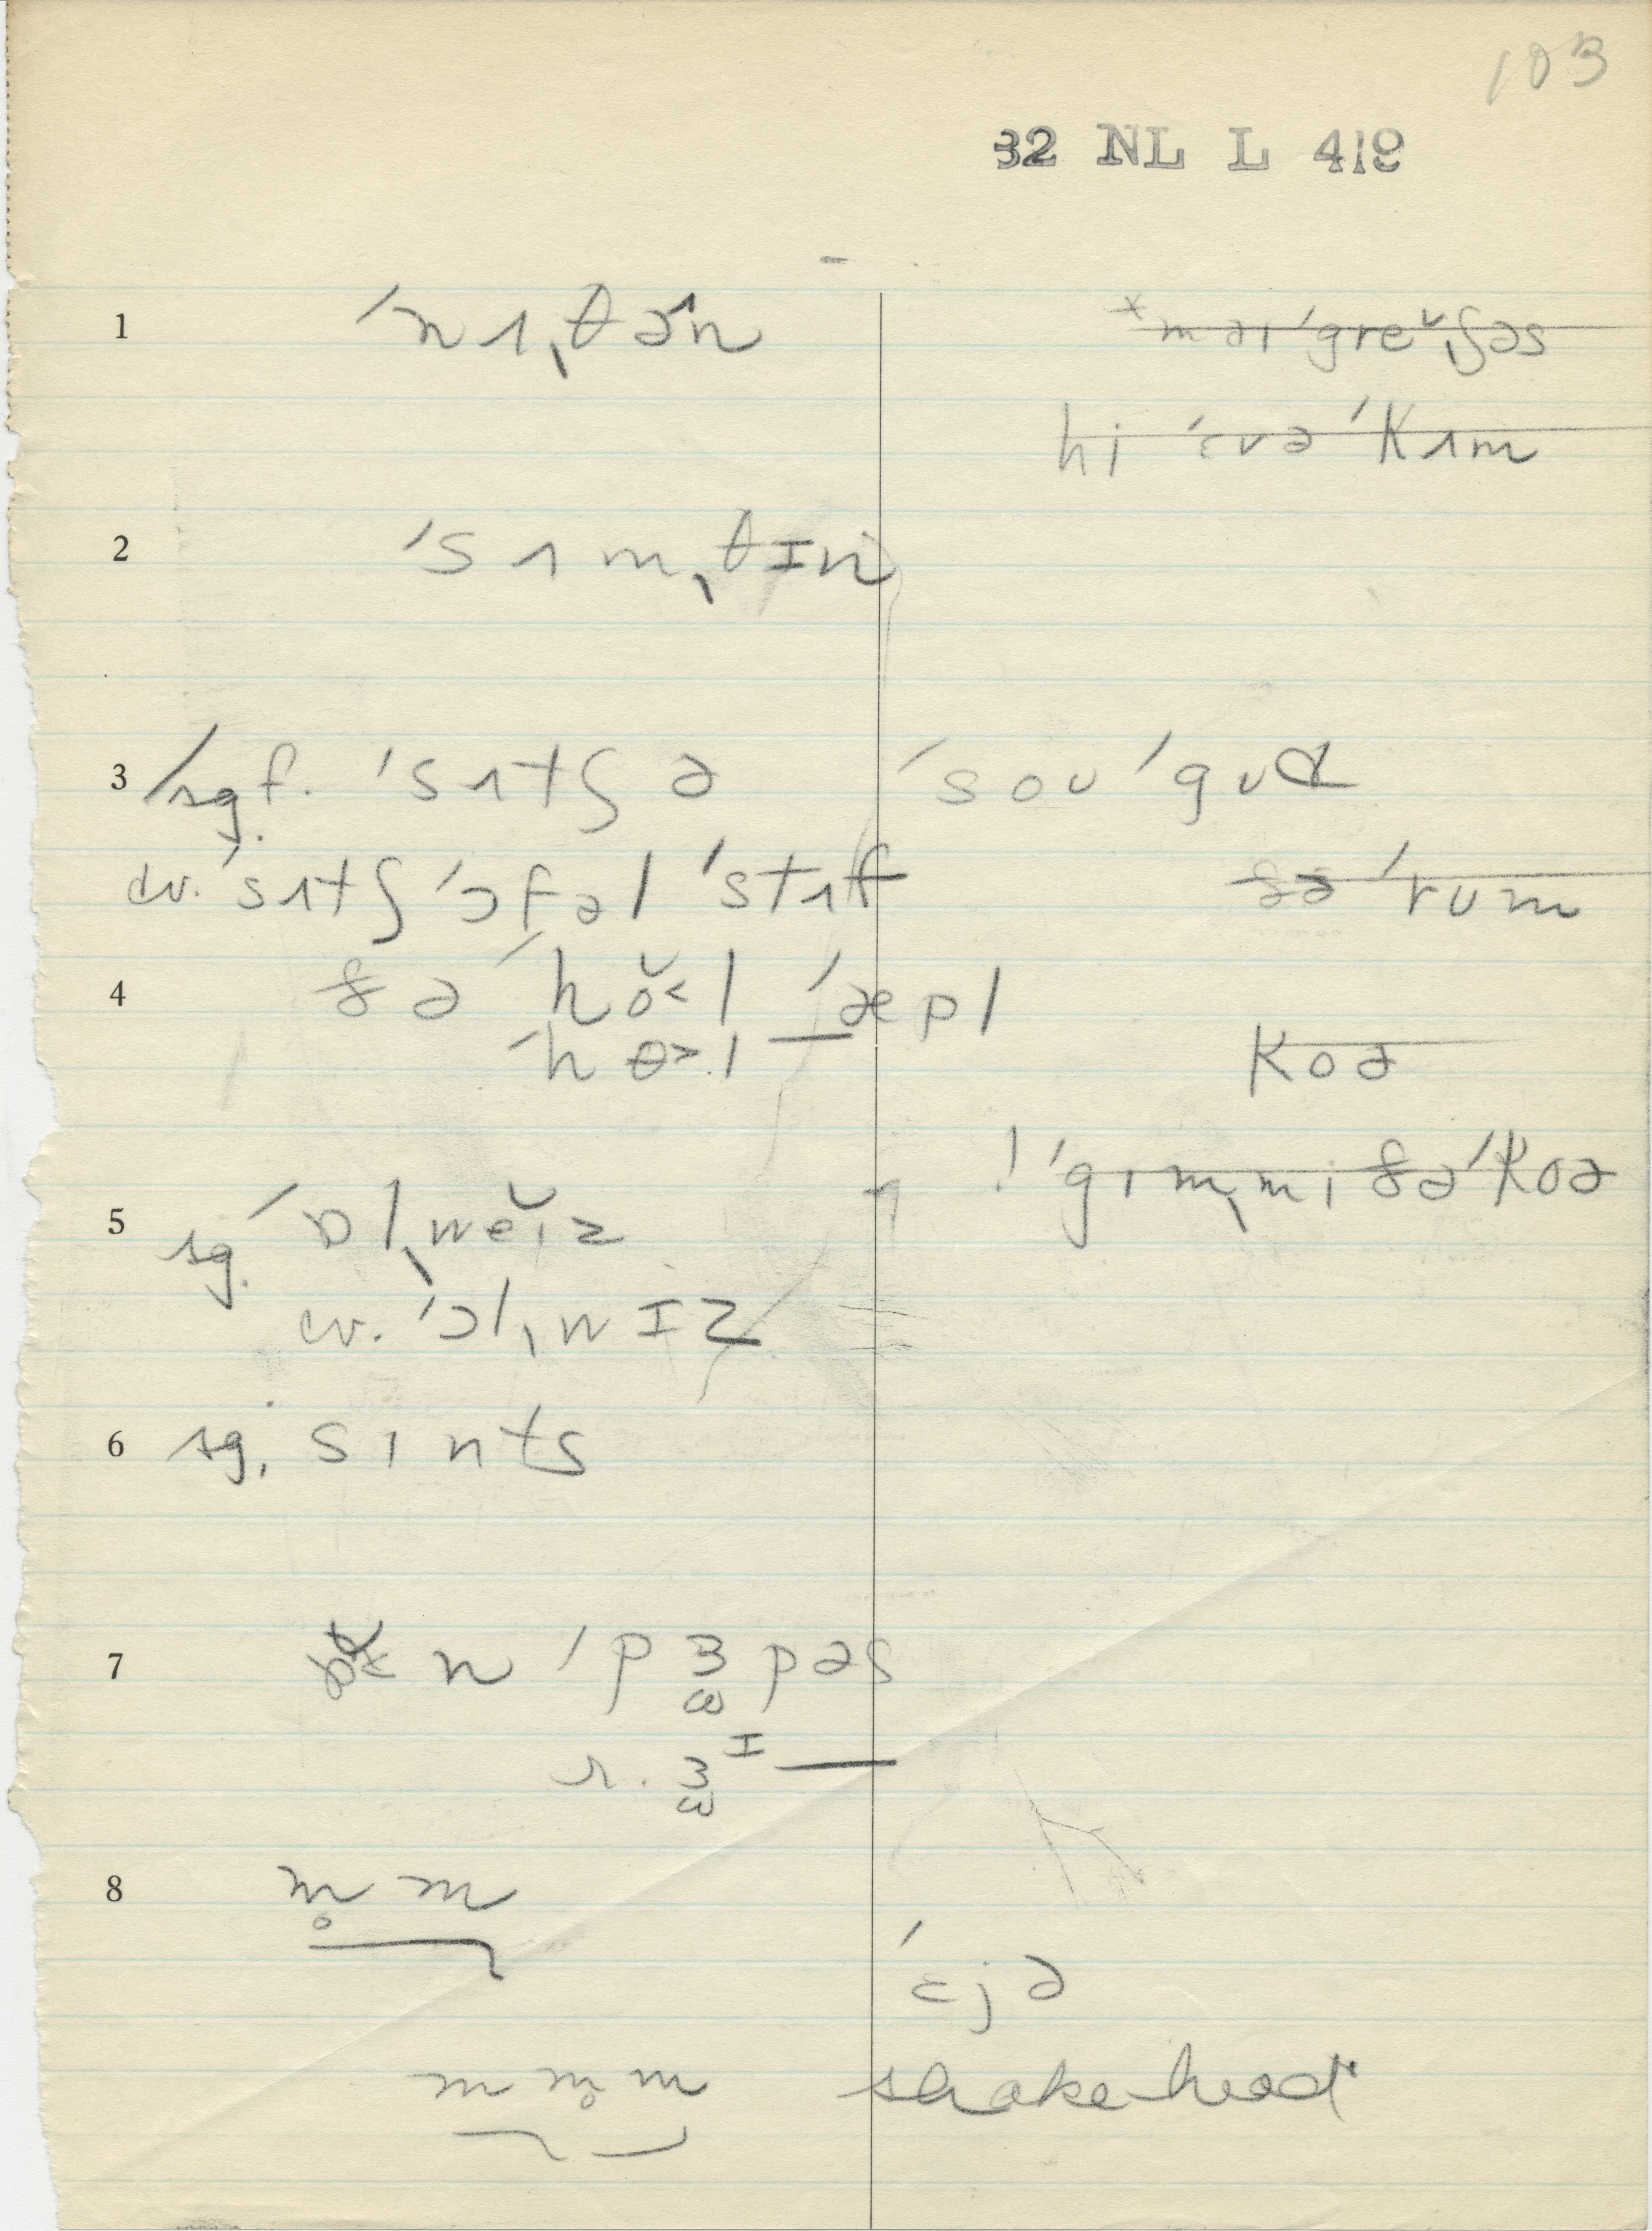 103
32 NL L 419
1 ˈnɪˌθən *maɪ ˈgreˇɪʃəs
hi ˈɛvə ˈkʌm
2 ˈsʌmˌθɪn
3 sg f. ˈsʌtʃ ə ˈsoʊ ˈgʊd
cv. ˈsʌtʃ ˈɔfəl ˈstʌf ðə ˈrum
4 ðə ˈhŏ˂l ˈæpl
ˈhɵ˃l — koə
! ˈgɪmˌmi ðə ˈkoə
5 sg. ˈɒlˌweˇɪz
cv. ˈɔlˌwɪz
6 sg. sɪnts
7 n ˈpɜpəs
r. ɜᶦ —
8 m̥ m
ˈɛjə
m m̥ m shake head